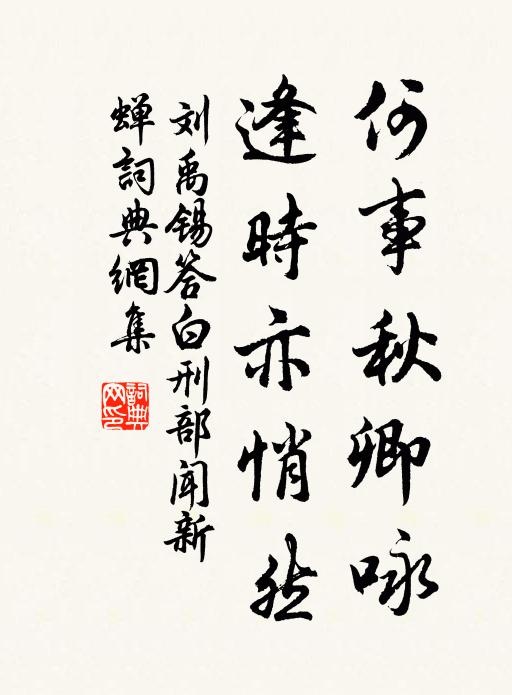 何事秋卿咏
逢時亦悄然
刘禹锡答白刑部闻新
蝉詞典網集
詞典
网印